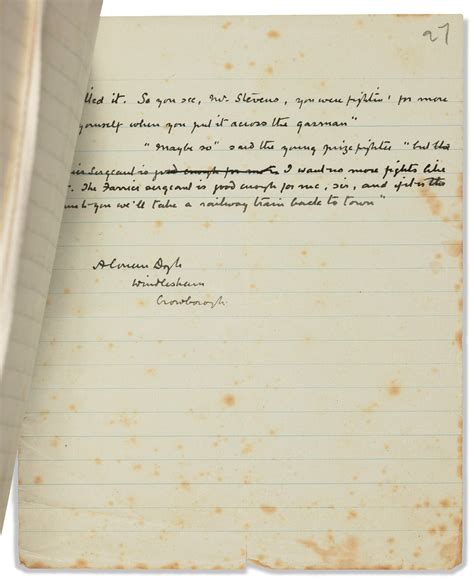 27
lled it. So you see, Mr. Stevens, you were fightin' for more
yourself when you put it across the gasman"
"Maybe so" said the young prize fighter "but
Sergeant is good enough for me I want no more fights like
. The Farrier sergeant is good enough for me, sir, and if it is the
to you we'll take a railway train back to town"
A Conan Doyle
Windlesham
Crowborough.